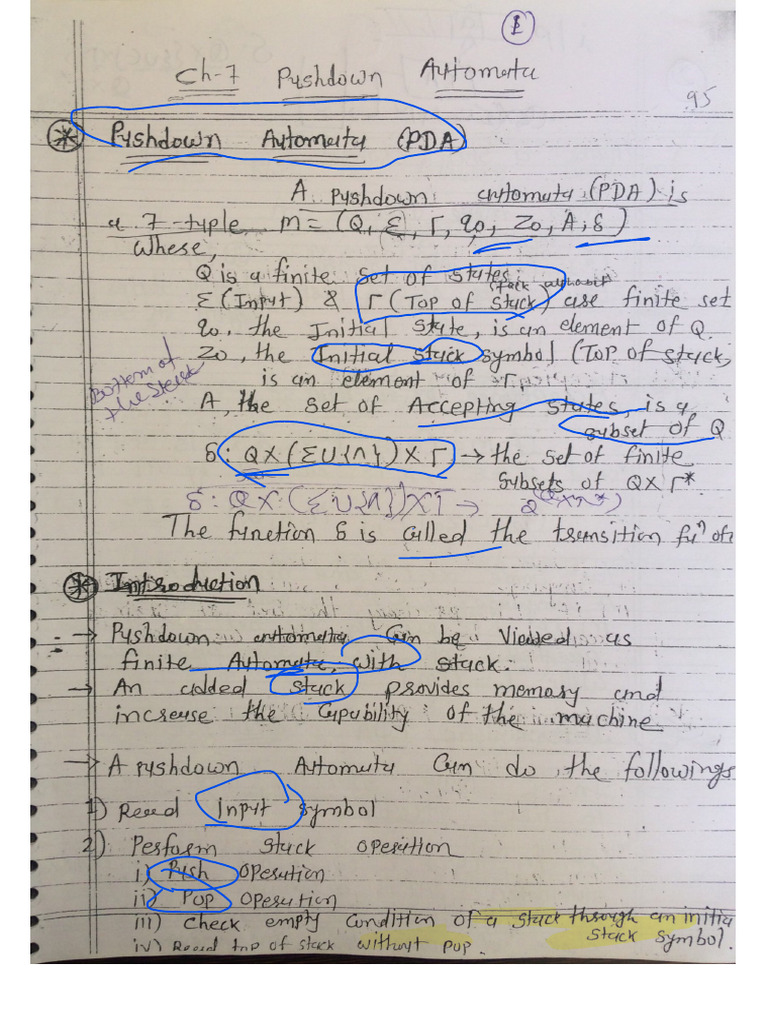 1
Ch-7 Pushdown Automata
95
* Pushdown Automata (PDA)
A pushdown automata (PDA) is
a 7-tuple M = (Q, Σ, Γ, q0, Z0, A, δ)
Where,
Q is a finite set of states.
stack alphabet
Σ (Input) & Γ (Top of stack) are finite set
q0, the Initial state, is an element of Q.
Z0, the Initial stack symbol (Top of stack,
Bottom of the stack
is an element of Γ,
A, the set of Accepting states, is a
subset of Q
δ: Q×(Σ∪{Λ})×Γ → the set of finite
subsets of Q×Γ*
δ: Q×(Σ∪{Λ})×Γ → 2^(Q×Γ*)
The function δ is called the transition fuⁿ of
* Introduction
→ Pushdown automata Can be Viewed as
finite Automata, with stack.
→ An added stack provides memory and
increase the Capability of the machine
→ A pushdown Automata Can do the followings
1) Read input symbol
2) Perform stack operation
i) Push operation
ii) Pop operation
iii) Check empty Condition of a stack through an initia
stack symbol.
iv) Read top of stack without pop.